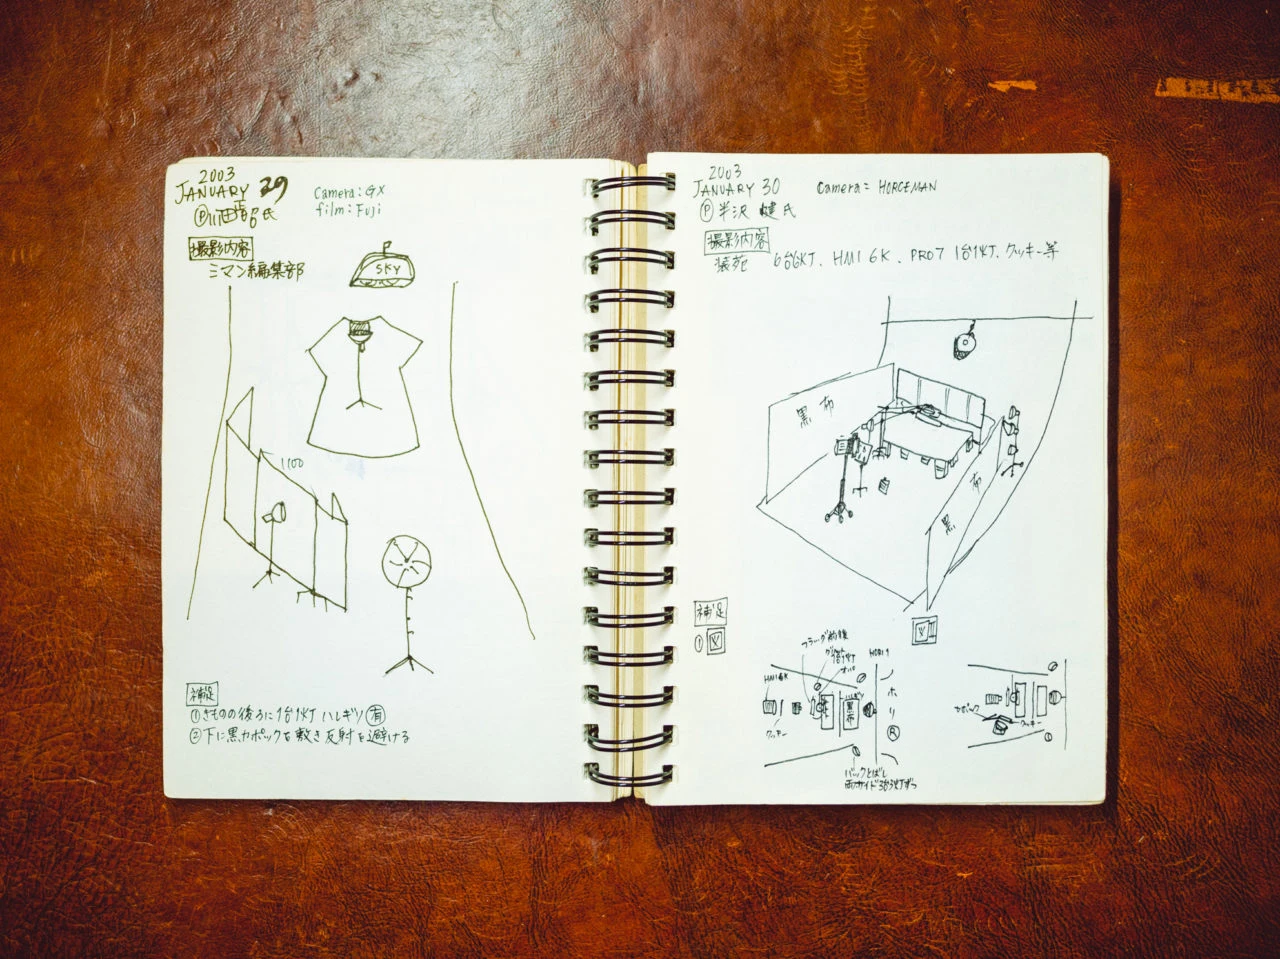 2003
JANUARY 29
Camera: GX
film: Fuji
Ⓟ 氏
撮影内容
ミマン編集部
SKY
1100
補足
①きものの後ろに1台1灯 ハレギリ 有
②下に黒カポックを敷き反射を避ける
2003
JANUARY 30
Camera = HORCEMAN
Ⓟ半沢 健氏
撮影内容
装苑 6台6灯、HMI 6K、PRO7 1台1灯、クッキー等
黒布
黒布
図
補足
① 図
フラッグ前後
1台1灯
HMI 6K
ハレギリ
黒布
ホリ
R
クッキー
バックとばし
両サイド3台3灯ずつ
カポック
クッキー